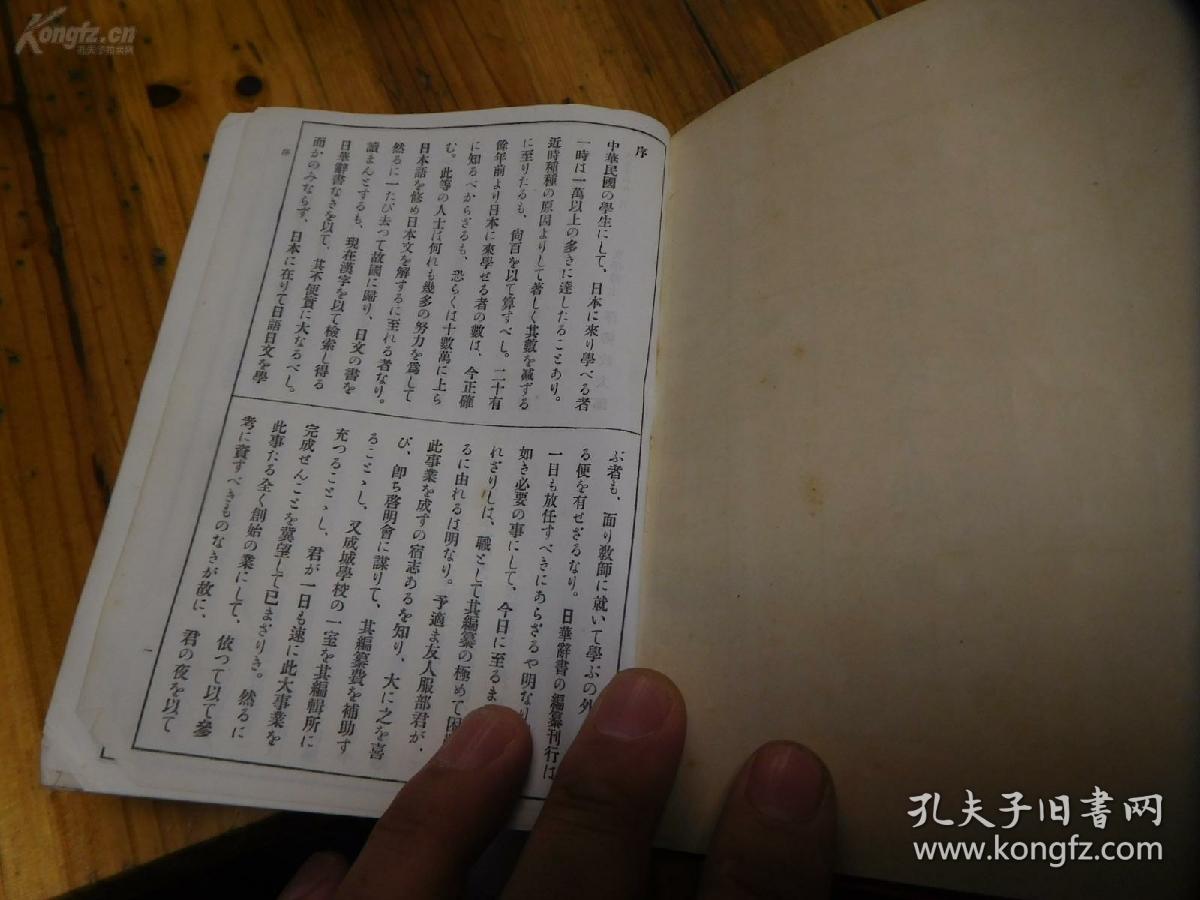 Kongfz.cn
孔夫子拍卖网
序
中華民國の學生にして、日本に來り學べる者
一時は一萬以上の多きに達したることあり。
近時種種の原因よりして著しく其數を減ずる
に至りたるも、尙百を以て算すべし。二十有
餘年前より日本に來學せる者の數は、今正確
に知るべからざるも、恐らくは十數萬に上ら
む。此等の人士は何れも幾多の努力を爲して
日本語を修め日本文を解するに至れる者なり。
然るに一たび去つて故國に歸り、日文の書を
讀まんとするも、現在漢字を以て檢索し得る
日華辭書なきを以て、其不便實に大なるべし。
而かのみならず、日本に在りて日語日文を學
ぶ者も、面り敎師に就いて學ぶの外
る便を有せざるなり。日華辭書の編纂刊行は
一日も放任すべきにあらざるや明なり
如き必要の事にして、今日に至るま
れざりしは、職として其編纂の極めて困
るに由れるは明なり。予適ま友人服部君が、
此事業を成すの宿志あるを知り、大に之を喜
び、卽ち啓明會に謀りて、其編纂費を補助す
ることゝし、又成城學校の一室を其編輯所に
充つることゝし、君が一日も速に此大事業を
完成せんことを冀望して已まざりき。然るに
此事たる全く創始の業にして、依つて以て參
考に資すべきものなきが故に、君の夜を以て
序
一
孔夫子旧书网
www.kongfz.com